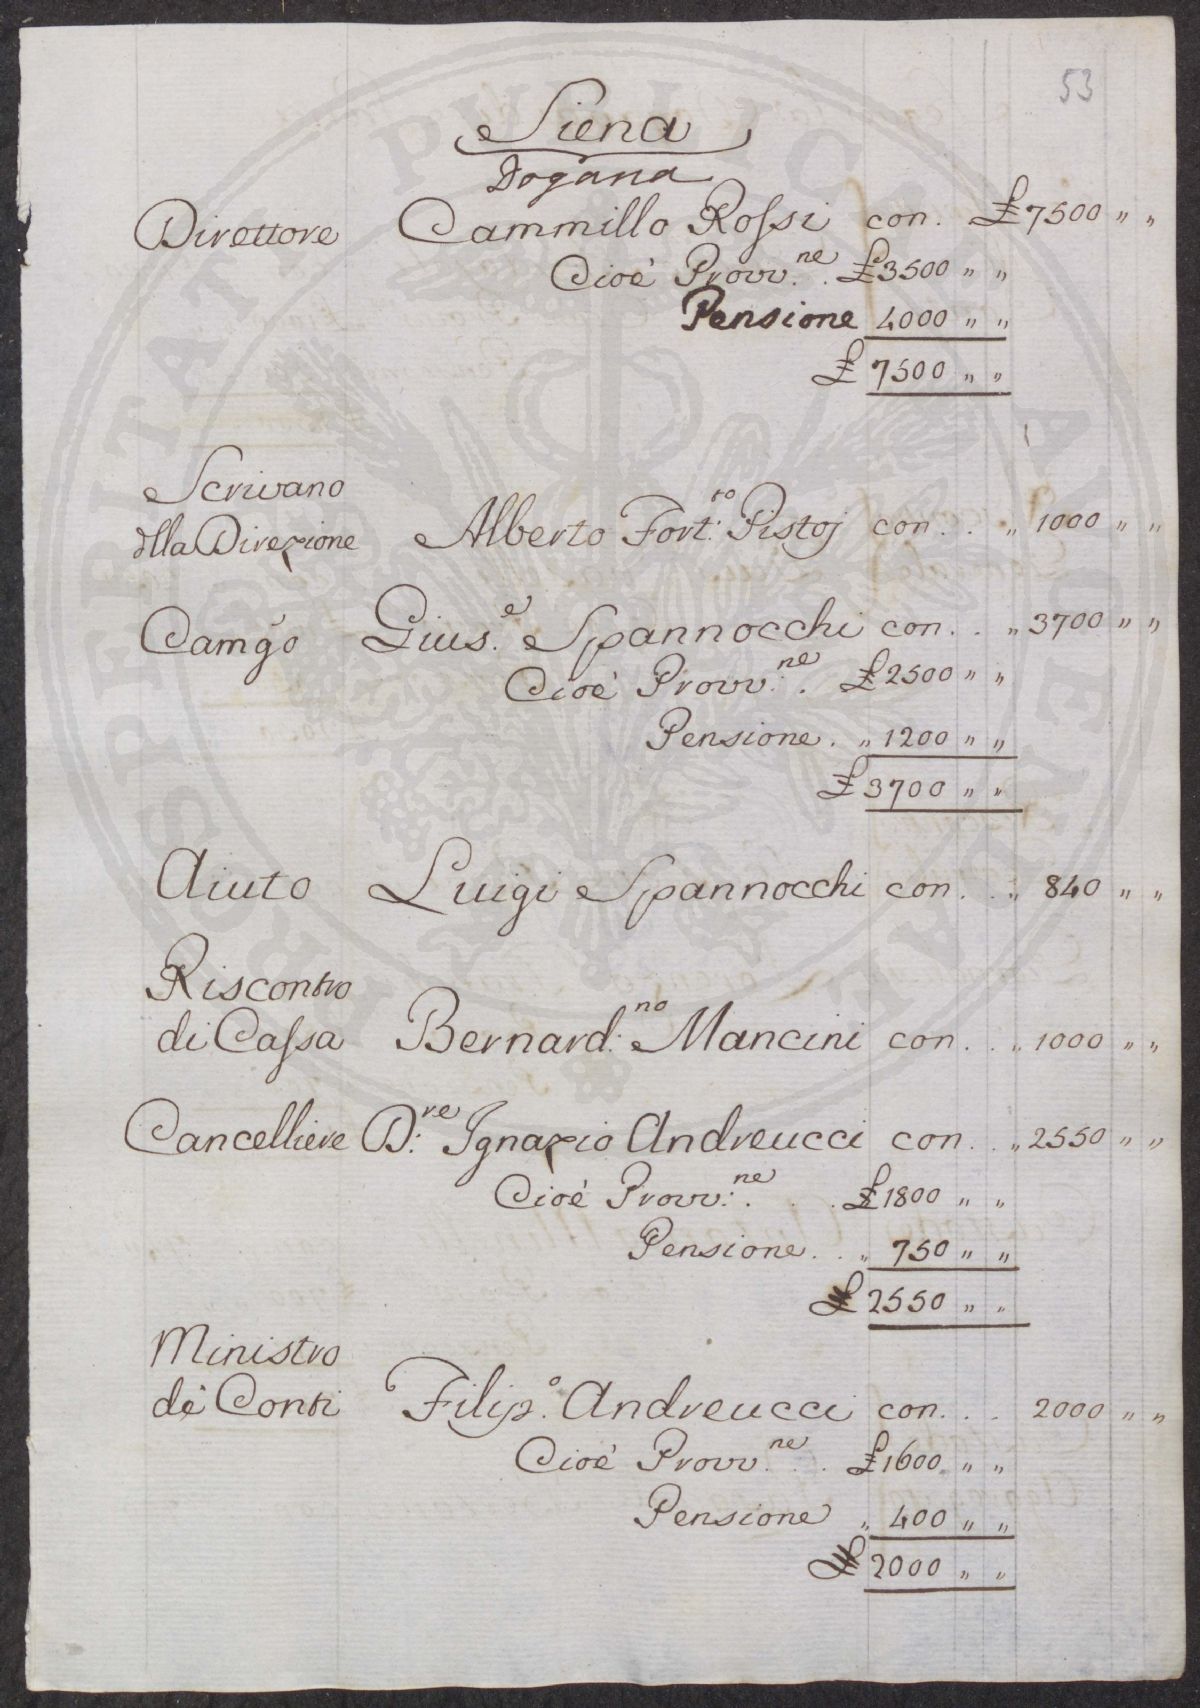 53
Siena
Dogana
Direttore Cammillo Rossi con. £ 7500 " "
Cioè Provv.ne . £ 3500 " "
Pensione 4000 " "
£ 7500 " "
Scrivano
dlla Direzione Alberto Fort:to Pistoj con . . " 1000 " "
Camgo Gius.e Spannocchi con . . " 3700 " "
Cioè Provv:ne . £ 2500 " "
Pensione . " 1200 " "
£ 3700 " "
Aiuto Luigi Spannocchi con . . " 840 " "
Riscontro
di Cassa Bernard:no Mancini con . . " 1000 " "
Cancelliere D:re Ignazio Andreucci con . . " 2550 " "
Cioè Provv:ne . . . £ 1800 " "
Pensione . . " 750 " "
£ 2550 " "
Ministro
de' Conti Filip.o Andreucci con. . . 2000 " "
Cioè Provv.ne . . £ 1600 " "
Pensione " 400 " "
£ 2000 " "
PROSPERITATI PUBLICAE AUGENDAE